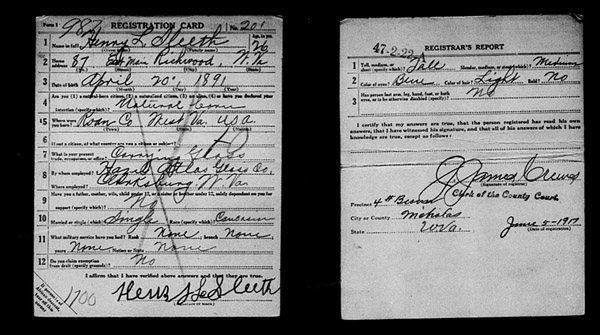 Form 1
987
REGISTRATION CARD
No. 201
1 Name in full Henry L. Sleeth
Age, in yrs. 26
2 Home address 87 East Main Richwood, W. Va
3 Date of birth April 20, 1891
4 Are you (1) a natural-born citizen, (2) a naturalized citizen, (3) an alien, (4) or have you declared your
intention (specify which)? Natural Born
5 Where were you born? Roan Co. West Va. USA.
6 If not a citizen, of what country are you a citizen or subject?
7 What is your present trade, occupation, or office? Carrying Glass
8 By whom employed? Hazel Atlas Glass Co.
Where employed? Clarksburg W. Va.
9 Have you a father, mother, wife, child under 12, or a sister or brother under 12, solely dependent on you for
support (specify which)? No
10 Married or single (which)? Single Race (specify which)? Caucasian
11 What military service have you had? Rank None branch None
years None Nation or State None
12 Do you claim exemption from draft (specify grounds)? No
I affirm that I have verified above answers and that they are true.
1700
47-2-22
REGISTRAR'S REPORT
1 Tall, medium, or short (specify which)? Tall Slender, medium, or stout (which)? Medium
2 Color of eyes? Blue Color of hair? Light Bald? No
3 Has person lost arm, leg, hand, foot, or both
eyes, or is he otherwise disabled (specify)? No
I certify that my answers are true, that the person registered has read his own
answers, that I have witnessed his signature, and that all of his answers of which I have
knowledge are true, except as follows:
(Signature of registrar)
Clerk of the County Court
Precinct 4
City or County Nicholas
State W.Va.
June 5-1917
(Date of registration)